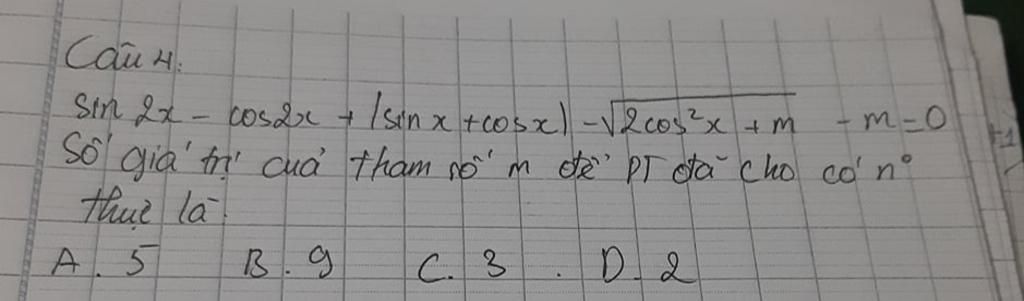 Câu 4:
sin 2x - cos2x + |sin x + cos x| - √(2cos²x + m) - m = 0
Số giá trị của tham số m để PT đã cho có n°
thực là
A. 5 B. 9 C. 3 . D. 2